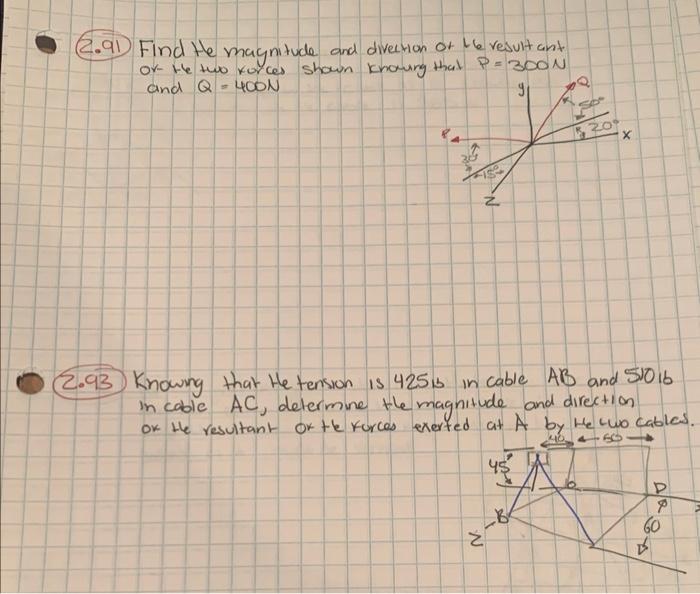 2.91 Find the magnitude and direction of the resultant
of the two forces shown knowing that P = 300N
and Q = 400N
y
Q
50°
20°
x
P
30°
15°
z
2.93 Knowing that the tension is 425 lb in cable AB and 510 lb
in cable AC, determine the magnitude and direction
of the resultant of the forces exerted at A by the two cables.
40
50
45
D
B
60
z